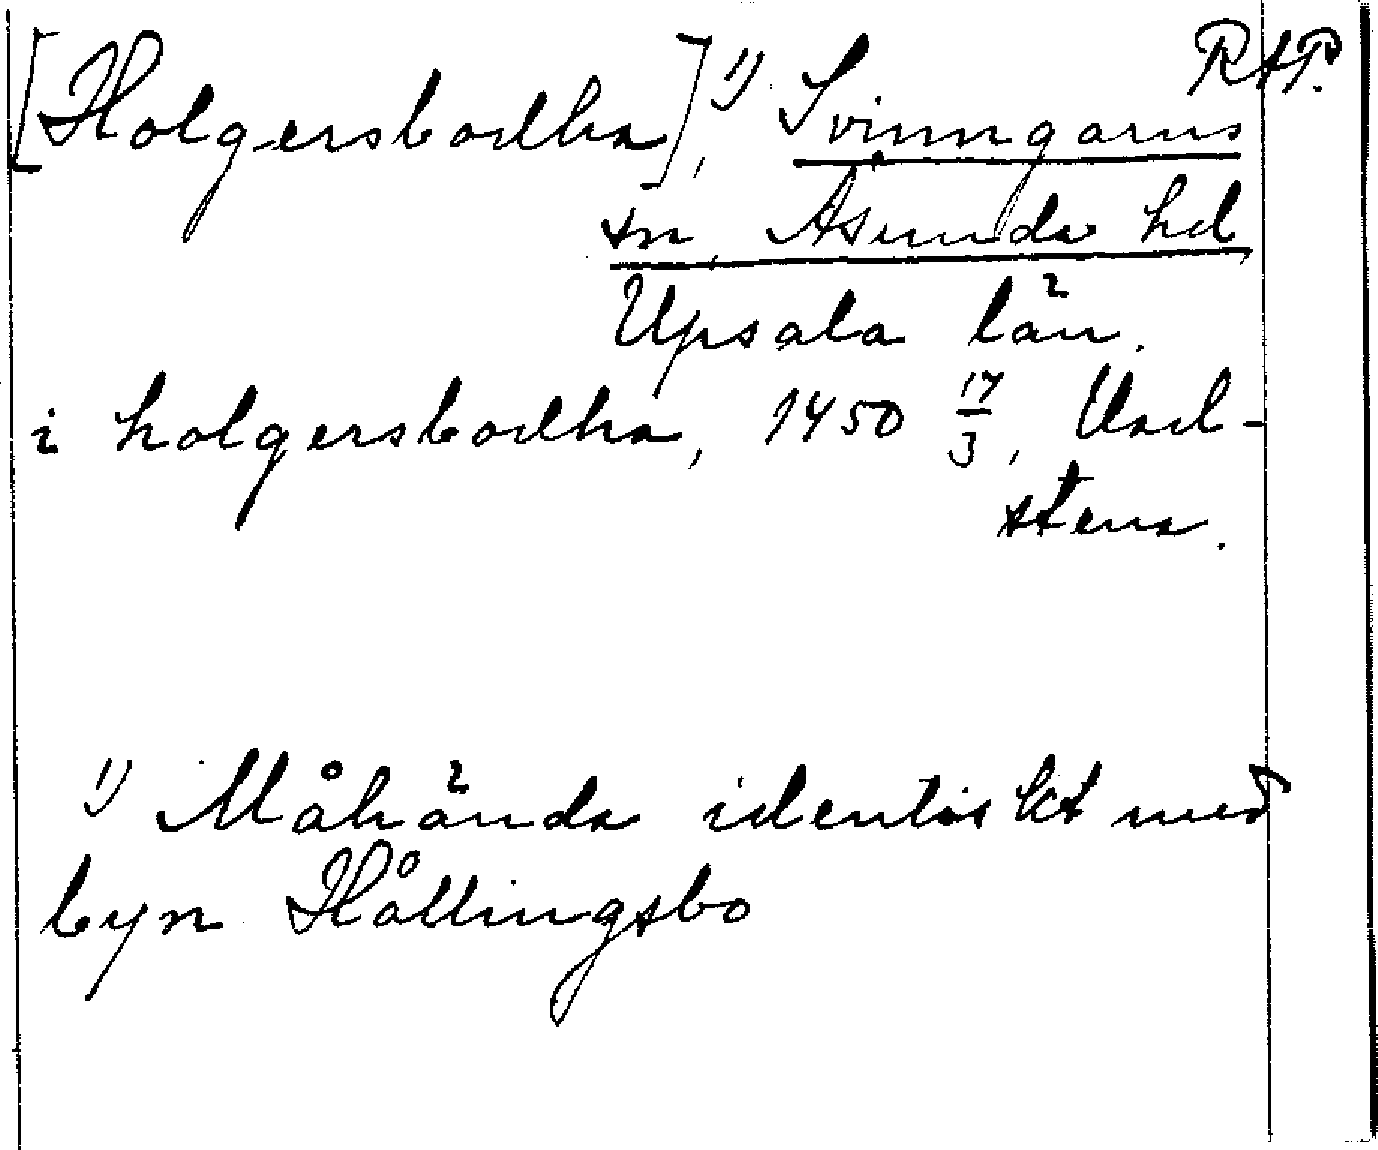 RAP.
[Holgersbodha],¹⁾ Svinngarns
sn, Åsunda hd,
Upsala län.
i holgersbodha, 1450 17/3, Vad-
stena.
¹⁾ Måhända identiskt med
byn Hållingsbo